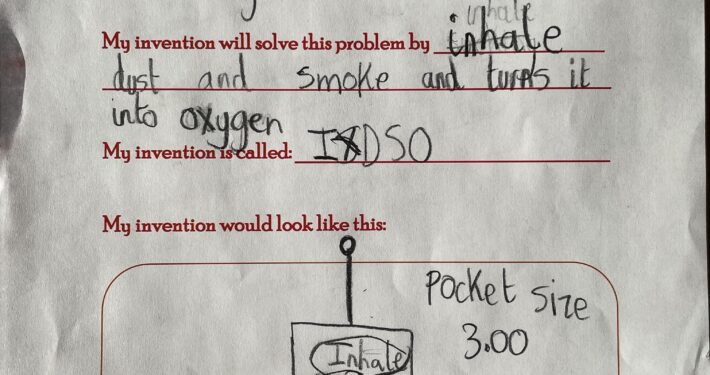 inhale
My invention will solve this problem by inhale
dust and smoke and turns it
into oxygen
My invention is called: IDSO
My invention would look like this:
Pocket size
3.00
Inhale